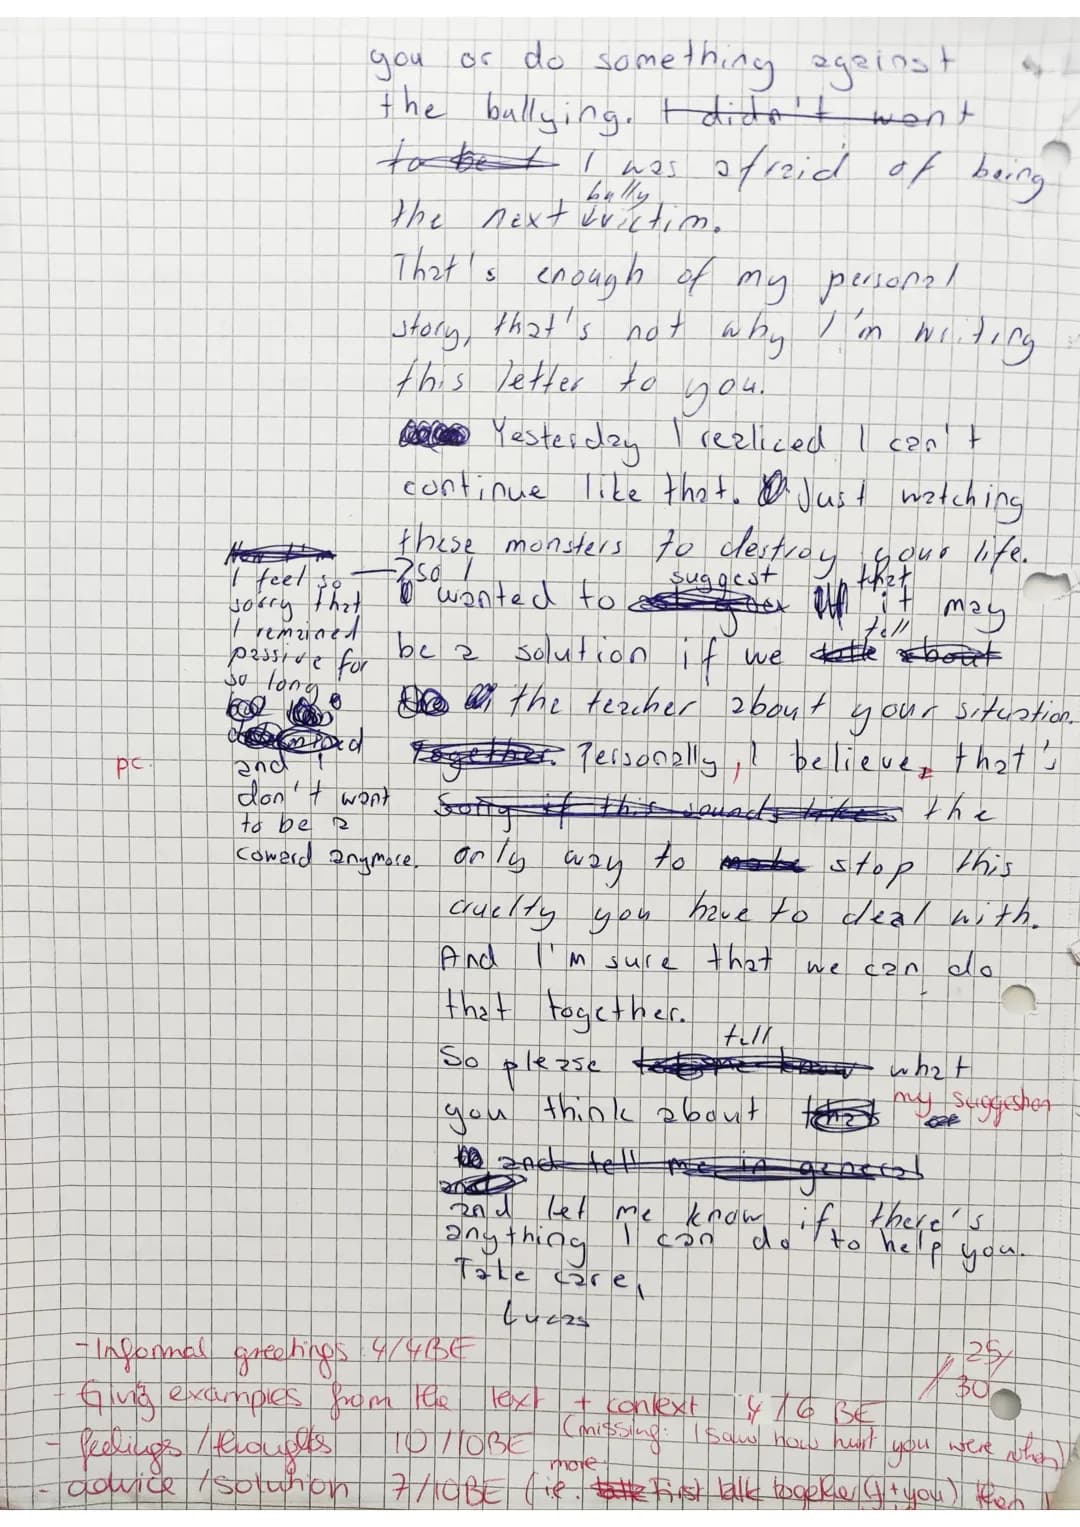 you or do something against
the bullying. I didn't want
to be t I was afraid of being
bully
the next victim.
That's enough of my personal
story, that's not why I'm writing
this letter to you.
Yesterday I realiced I can't
continue like that. Just watching
these monsters to destroy your life.
I feel so
sorry that
I remained
passive for
so long
and I
don't want
to be a
coward anymore.
so I
suggest that
wanted to it may
tell
be a solution if we talk about
the teacher about your situation.
pc.
Together. Personally, I believe, that's
Sorry if this sounds like the
only way to make stop this
cruelty you have to deal with.
And I'm sure that we can do
that together.
tell
So please let me know what
you think about that my suggestion
and tell me in general
and let me know if there's
anything I can do to help you.
Take care,
Lucas
- Informal greetings 4/4BE
25/30
- Giving examples from the text + context 4/6 BE
(missing: I saw how hurt you were when)
- feelings/thoughts 10/10BE
more
- advice/solution 7/10BE (i.e. First talk together (I+you) then